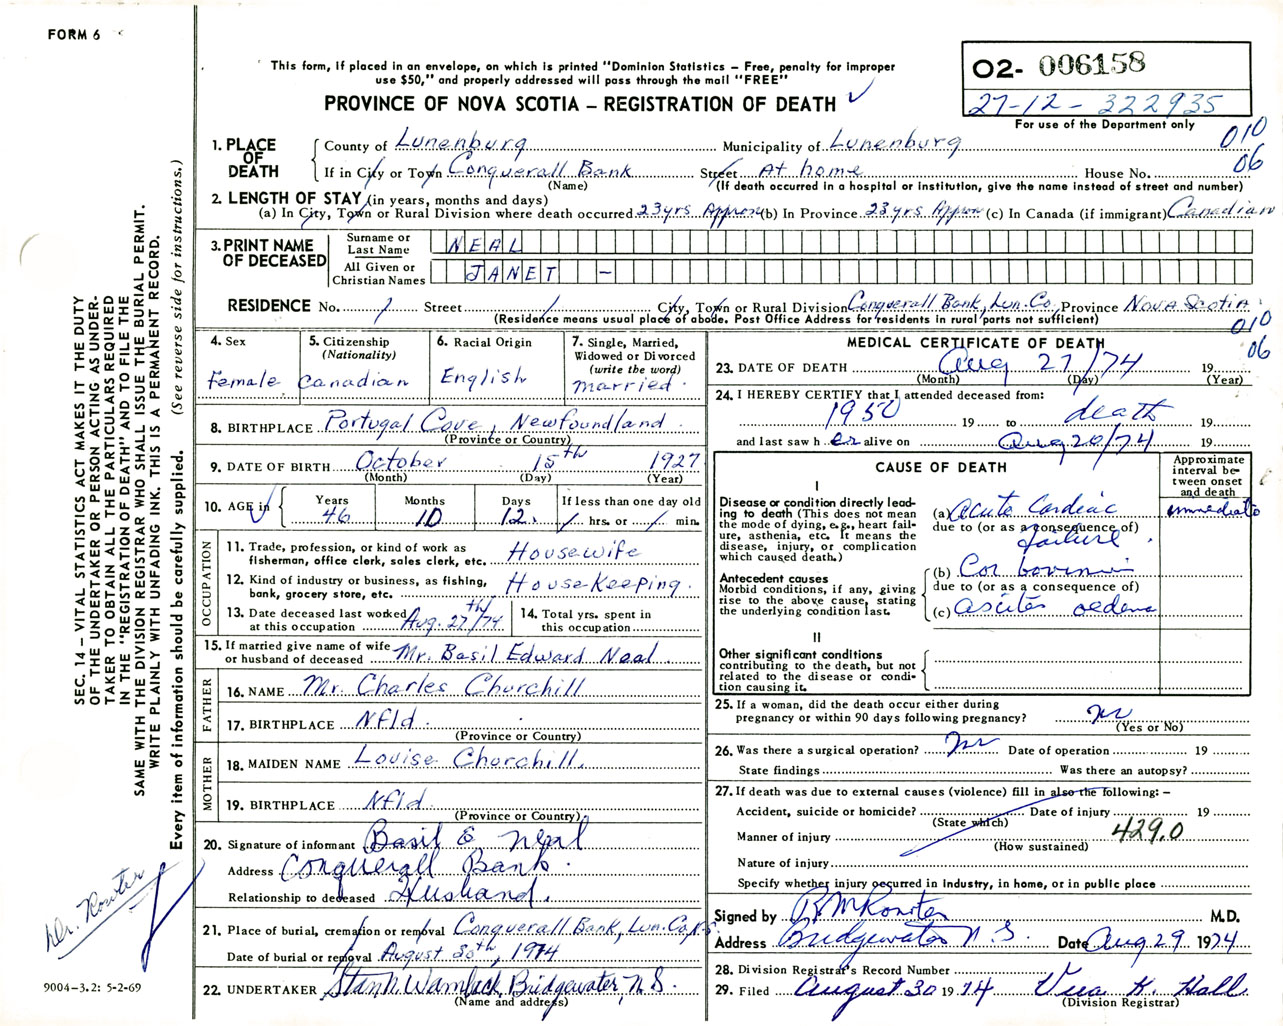 FORM 6
This form, if placed in an envelope, on which is printed "Dominion Statistics – Free, penalty for improper
use $50," and properly addressed will pass through the mail "FREE"
PROVINCE OF NOVA SCOTIA – REGISTRATION OF DEATH
02- 006158
27-12-322935
For use of the Department only
010
06
1. PLACE OF DEATH
County of Lunenburg Municipality of Lunenburg
If in City or Town Conquerall Bank Street At home House No.
(Name) (If death occurred in a hospital or institution, give the name instead of street and number)
2. LENGTH OF STAY (in years, months and days)
(a) In City, Town or Rural Division where death occurred 23 yrs Approx (b) In Province 23 yrs Approx (c) In Canada (if immigrant) Canadian
3. PRINT NAME OF DECEASED
Surname or Last Name NEAL
All Given or Christian Names JANET –
RESIDENCE No. / Street / City, Town or Rural Division Conquerall Bank, Lun. Co. Province Nova Scotia
(Residence means usual place of abode. Post Office Address for residents in rural parts not sufficient)
010
06
4. Sex
Female
5. Citizenship
(Nationality)
Canadian
6. Racial Origin
English
7. Single, Married,
Widowed or Divorced
(write the word)
married
8. BIRTHPLACE Portugal Cove, Newfoundland
(Province or Country)
9. DATE OF BIRTH October 15th 1927
(Month) (Day) (Year)
10. AGE in
Years 46
Months 10
Days 12
If less than one day old
/ hrs. or / min.
OCCUPATION
11. Trade, profession, or kind of work as
fisherman, office clerk, sales clerk, etc. Housewife
12. Kind of industry or business, as fishing,
bank, grocery store, etc. House-Keeping
13. Date deceased last worked
at this occupation Aug. 27th/74
14. Total yrs. spent in
this occupation
15. If married give name of wife
or husband of deceased Mr. Basil Edward Neal
FATHER
16. NAME Mr. Charles Churchill
17. BIRTHPLACE Nfld.
(Province or Country)
MOTHER
18. MAIDEN NAME Louise Churchill.
19. BIRTHPLACE Nfld
(Province or Country)
20. Signature of informant Basil E Neal
Address Conquerall Bank
Relationship to deceased Husband.
21. Place of burial, cremation or removal Conquerall Bank, Lun. Co., N.S.
Date of burial or removal August 30th, 1974
22. UNDERTAKER Bridgewater, N.S.
(Name and address)
MEDICAL CERTIFICATE OF DEATH
23. DATE OF DEATH Aug 27/74 19
(Month) (Day) (Year)
24. I HEREBY CERTIFY that I attended deceased from:
1950 19 to death 19
and last saw her alive on Aug 20/74 19
CAUSE OF DEATH
Approximate
interval be-
tween onset
and death
I
Disease or condition directly lead-
ing to death (This does not mean
the mode of dying, e.g., heart fail-
ure, asthenia, etc. It means the
disease, injury, or complication
which caused death.)
(a) Acute Cardiac immediate
due to (or as a consequence of)
failure.
Antecedent causes
Morbid conditions, if any, giving
rise to the above cause, stating
the underlying condition last.
(b) Cor
due to (or as a consequence of)
(c) ascites oedema
II
Other significant conditions
contributing to the death, but not
related to the disease or condi-
tion causing it.
25. If a woman, did the death occur either during
pregnancy or within 90 days following pregnancy? no
(Yes or No)
26. Was there a surgical operation? no Date of operation 19
State findings Was there an autopsy?
27. If death was due to external causes (violence) fill in also the following: –
Accident, suicide or homicide? Date of injury 19
(State which)
429.0
Manner of injury
(How sustained)
Nature of injury
Specify whether injury occurred in industry, in home, or in public place
Signed by M.D.
Address Bridgewater N.S. Date Aug 29 1974
28. Division Registrar's Record Number
29. Filed August 30 1974 Vera K. Hall
(Division Registrar)
SEC. 14 – VITAL STATISTICS ACT MAKES IT THE DUTY
OF THE UNDERTAKER OR PERSON ACTING AS UNDER-
TAKER TO OBTAIN ALL THE PARTICULARS REQUIRED
IN THE "REGISTRATION OF DEATH" AND TO FILE THE
SAME WITH THE DIVISION REGISTRAR WHO SHALL ISSUE THE BURIAL PERMIT.
WRITE PLAINLY WITH UNFADING INK. THIS IS A PERMANENT RECORD.
Every item of information should be carefully supplied. (See reverse side for instructions.)
Dr.
9004-3.2: 5-2-69